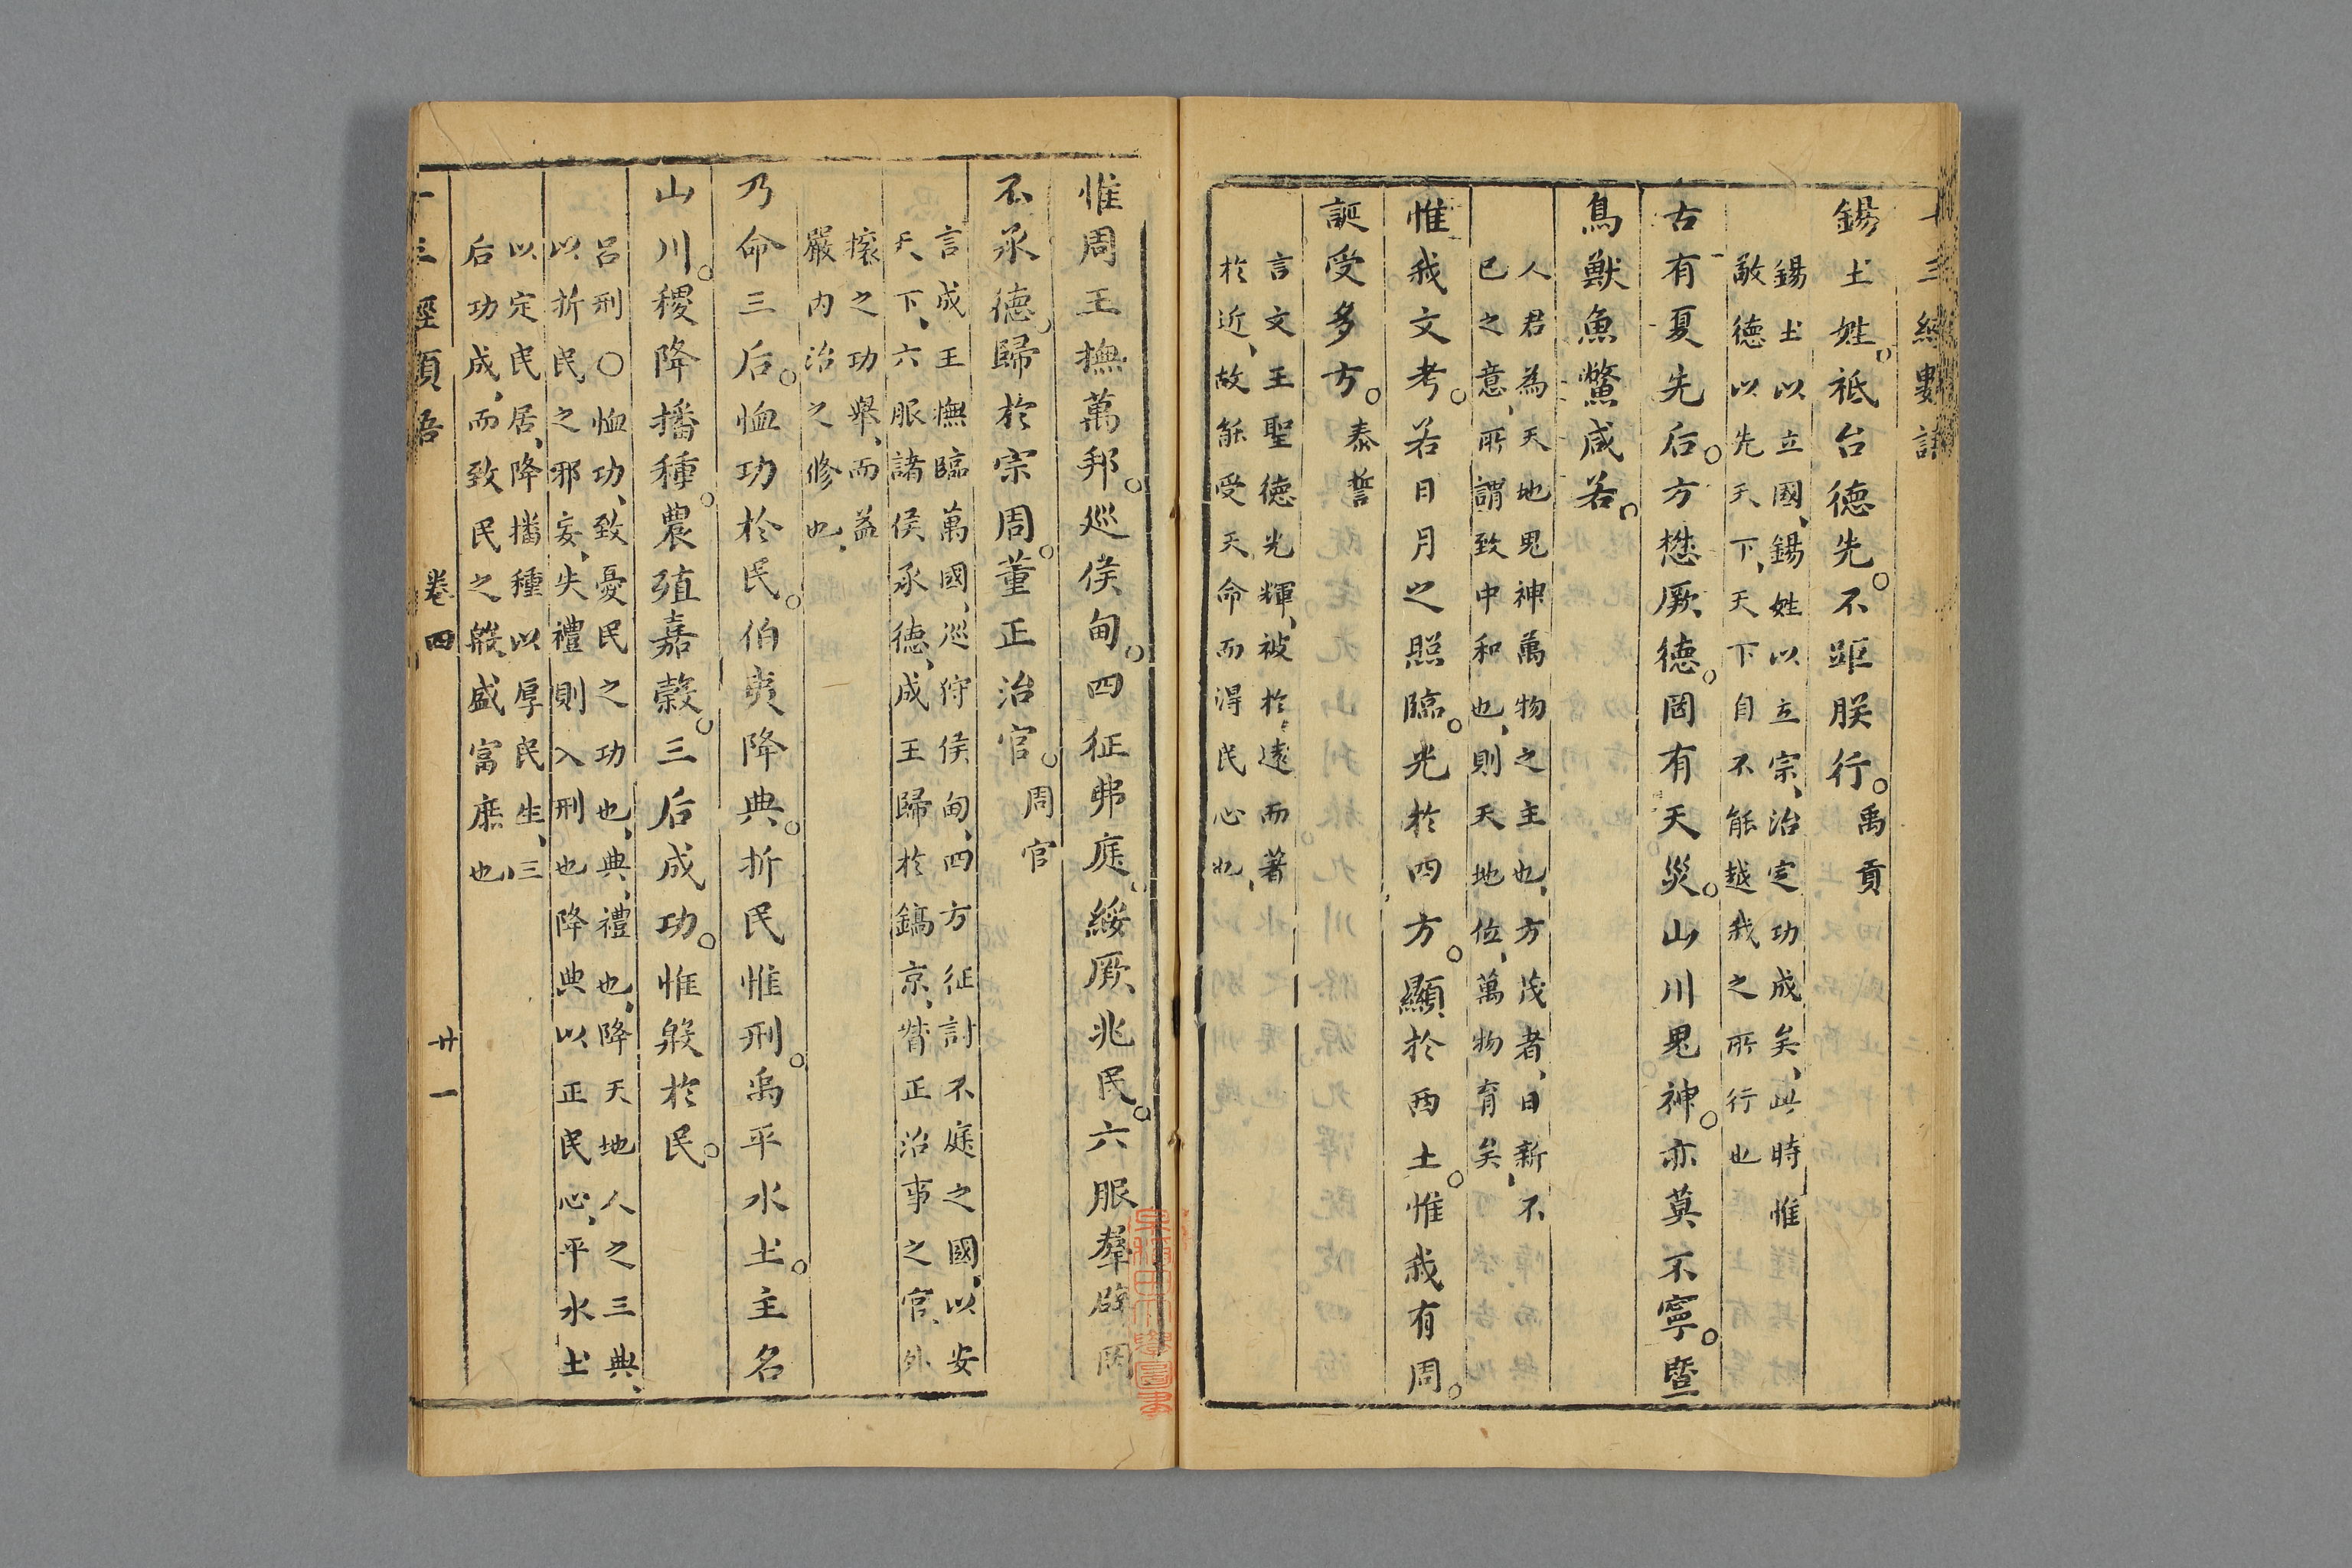 錫土姓。祗台德先。不距朕行。禹貢
錫土以立國、錫姓以立宗、治定功成矣、此時惟
敬德以先天下、天下自不能越我之所行也
古有夏先后。方懋厥德。罔有天災。山川鬼神。亦莫不寧。曁
鳥獸魚鱉咸若。
人君為天地鬼神萬物之主也、方茂者、日新不
已之意、所謂致中和也、則天地位、萬物育矣、
惟我文考。若日月之照臨。光於四方。顯於西土。惟我有周。
誕受多方。泰誓
言文王聖德光輝、被於遠而著
於近、故能受天命而得民心也、
惟周王撫萬邦。巡侯甸。四征弗庭。綏厥兆民。六服羣辟罔
不承德。歸於宗周。董正治官。周官
言成王撫臨萬國、巡狩侯甸、四方征討不庭之國、以安
天下、六服諸侯承德、成王歸於鎬京、督正治事之官、外
攘之功舉、而益
嚴內治之修也、
乃命三后。恤功於民。伯夷降典。折民惟刑。禹平水土。主名
山川。稷降播種。農殖嘉穀。三后成功。惟殷於民。
呂刑〇恤功、致憂民之功也、典、禮也、降天地人之三典、
以折民之邪妄、失禮則入刑也降典以正民心、平水土
以定民居、降播種以厚民生、三
后功成、而致民之殷盛富庶也
卷四
廿一